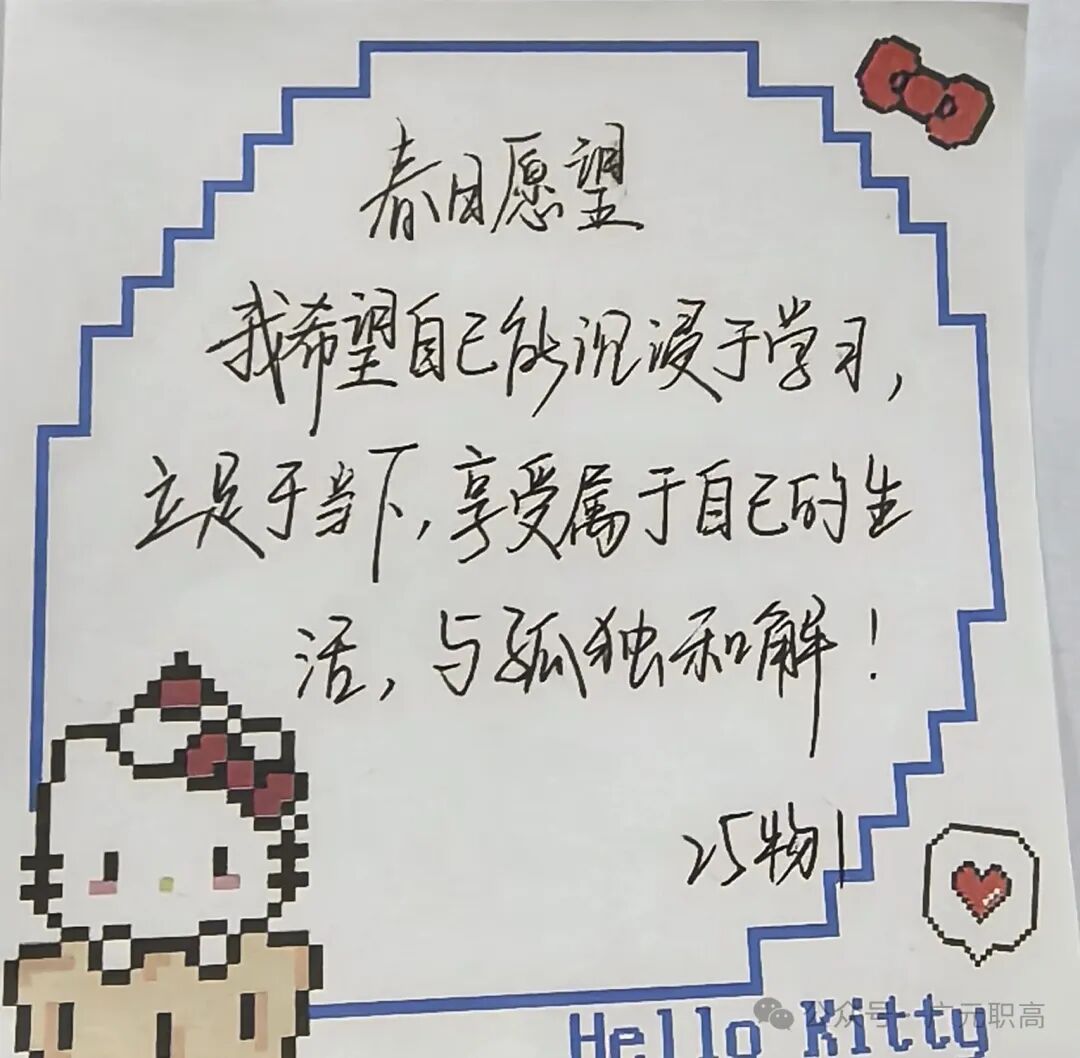 春日愿望
我希望自己能沉浸于学习，
立足于当下，享受属于自己的生
活，与孤独和解！
25物1
Hello Kitty
公众号·广元职高